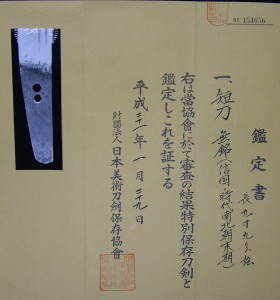 鑑定書
一、短刀 無銘(信国・時代南北朝末期)
長九寸九分強
右は當協會に於て審査の結果特別保存刀剣と
鑑定しこれを証する
平成二十一年一月二十九日
財團法人 日本美術刀剣保存協會